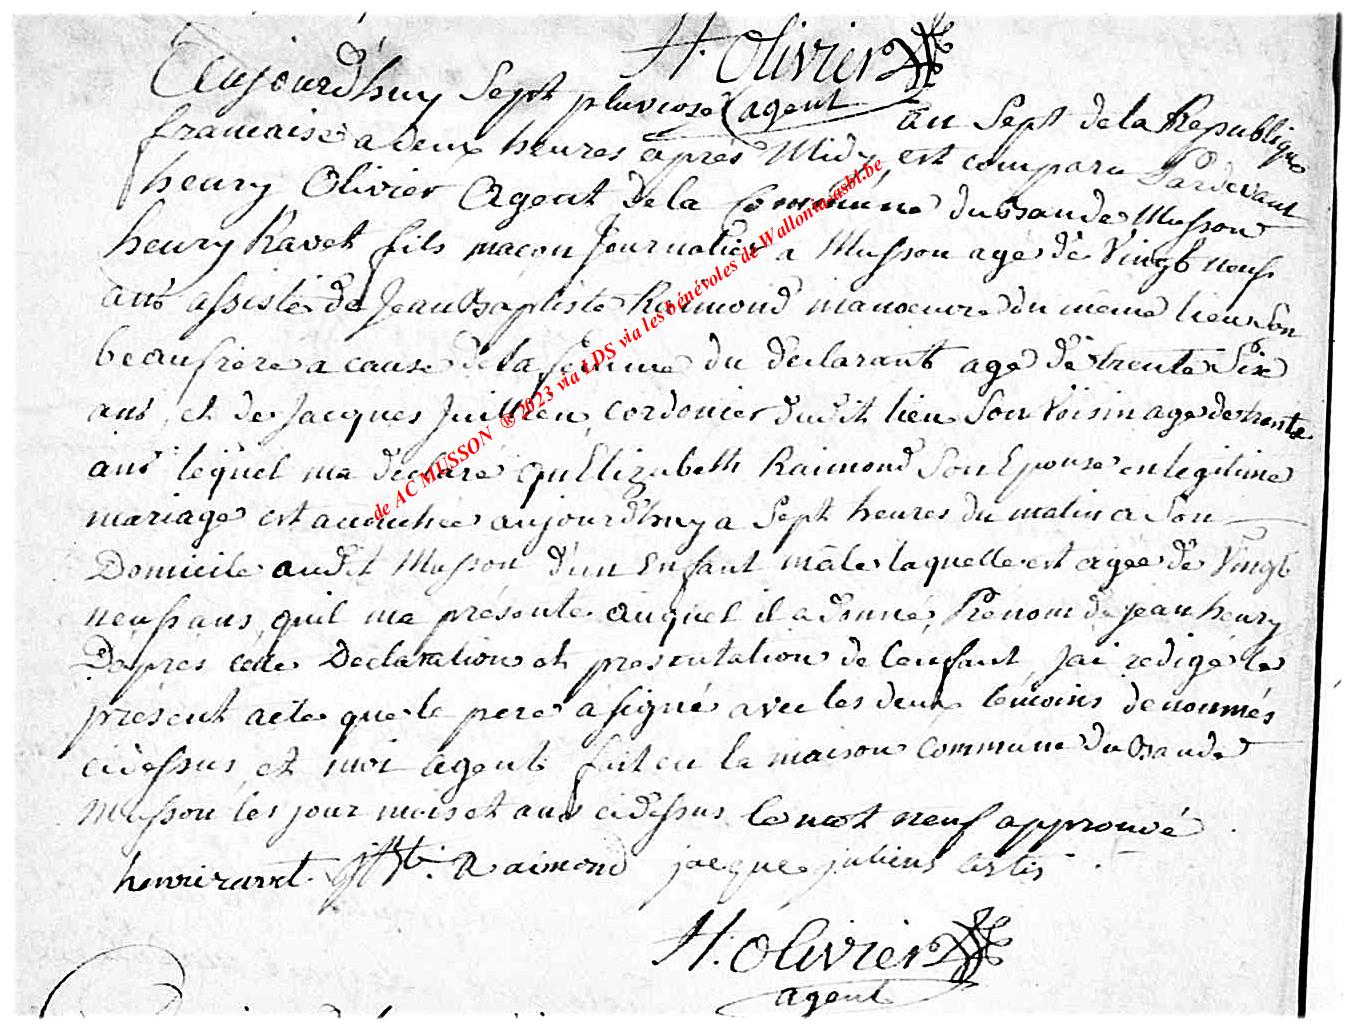 H. Olivier
agent
Aujourd'huy Sept pluviose an Sept de la Republique
francaise a deux heures après Midy est comparu Pardevant
henry Olivier Agent de la Commune dubande Musson
henry Ravet fils maçon Journalier a Musson agé de Vingt neuf
ans assisté de Jean Baptiste Raimond manoeuvre du même lieu Son
beaufrere a cause de la femme du déclarant agé de trente Six
ans et de Jacques Juillien cordonier dudit lieu Son Voisin agé de trente
ans lequel ma déclaré qu'Elizabeth Raimond Son Epouse en legitime
mariage est accouchée aujourd'huy a Sept heures du matin a Son
Domicile audit Musson d'un Enfant mâle laquelle est agée de Vingt
neuf ans, quil ma présenté auquel il a donné Prénom de jean henry
D'après cette Declaration et presentation de l'enfant jai redigé le
présent acte que le pere a signé avec les deux temoins denommés
cidessus et moi agent fait en la maison commune du bande
Musson les jour mois et ans cidessus le mot neuf approuvé
henri ravet. jbt. Raimond jacque juliens
H. Olivier
agent
de AC MUSSON ® 2023 via LDS via les bénévoles de Wallonia asbl.be